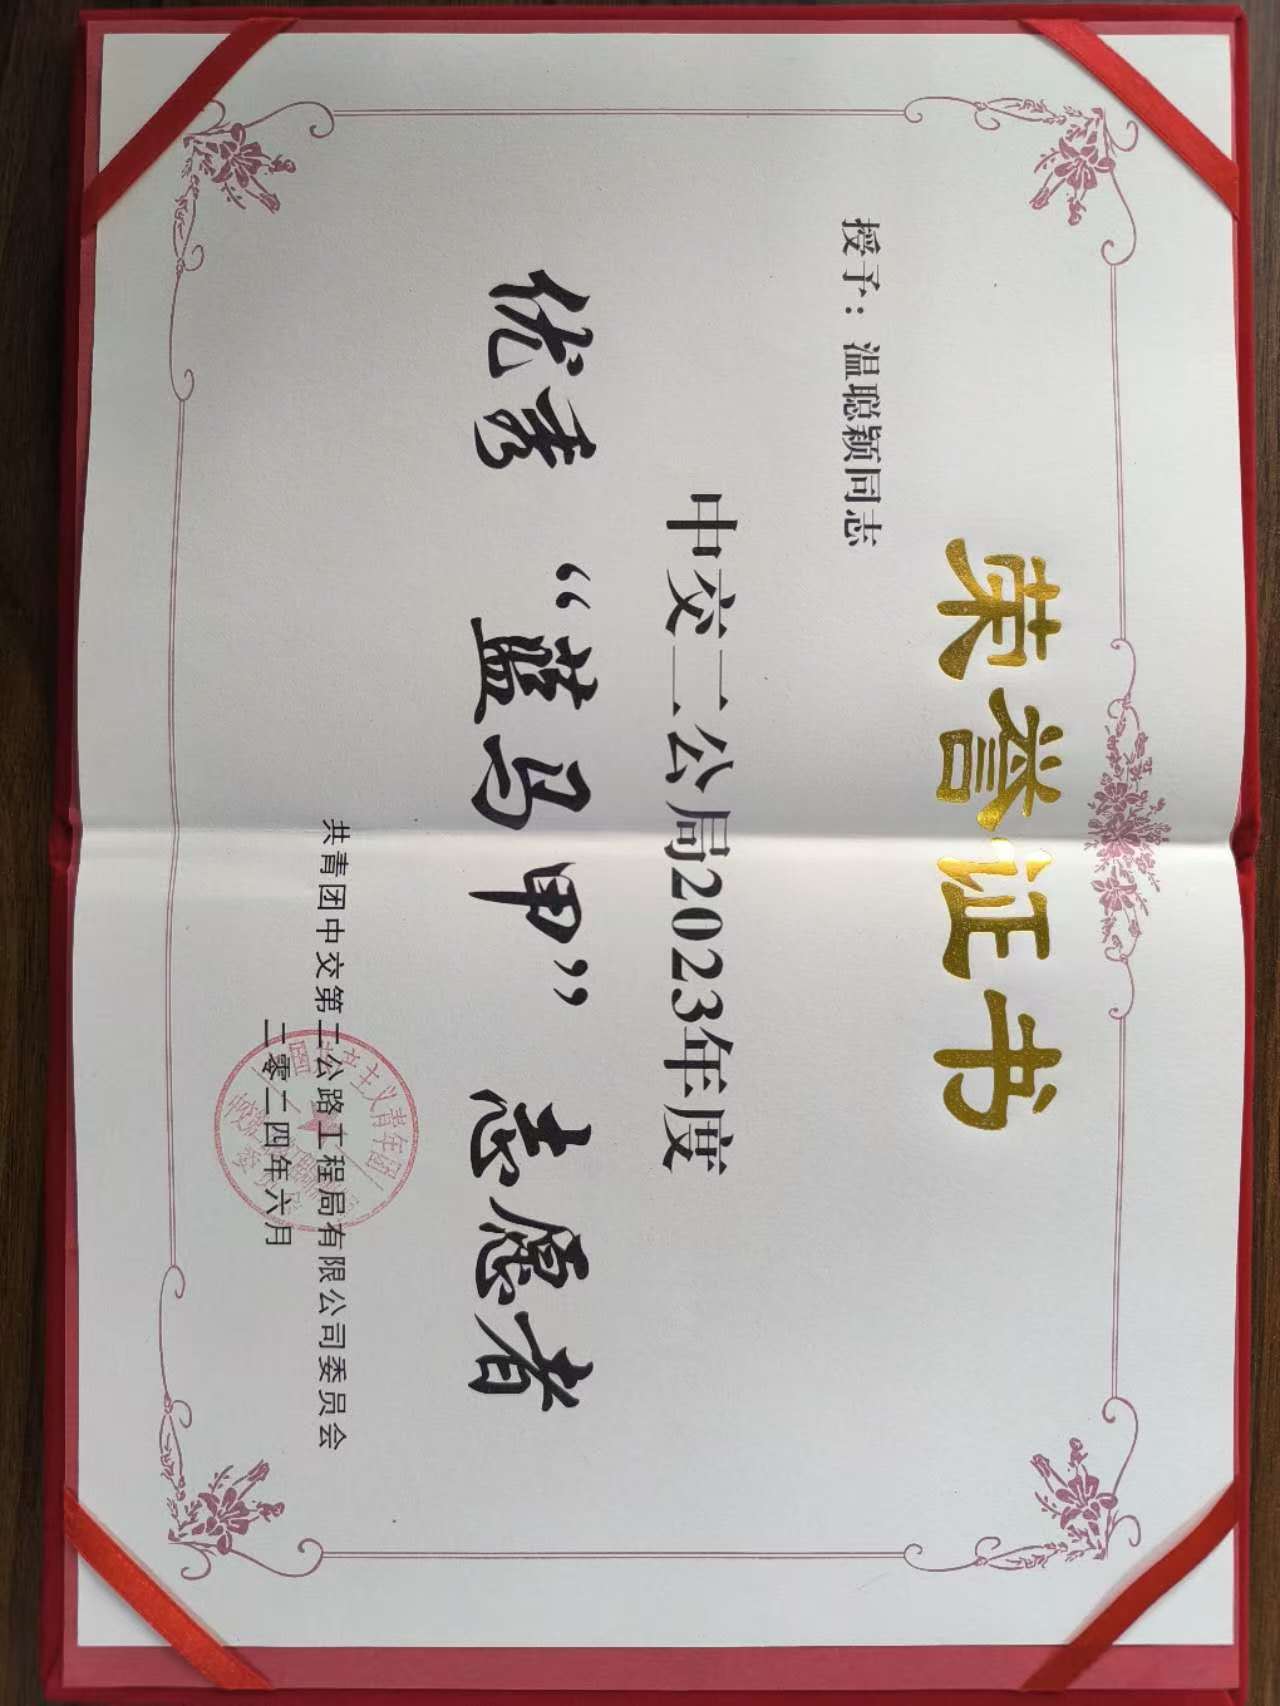 荣誉证书
授予：温聪颖同志
中交二公局2023年度
优秀“蓝马甲”志愿者
共青团中交第二公路工程局有限公司委员会
二零二四年六月